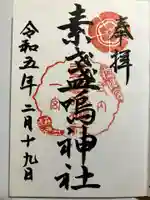 奉拝
素盞嗚神社
令和五年二月十九日